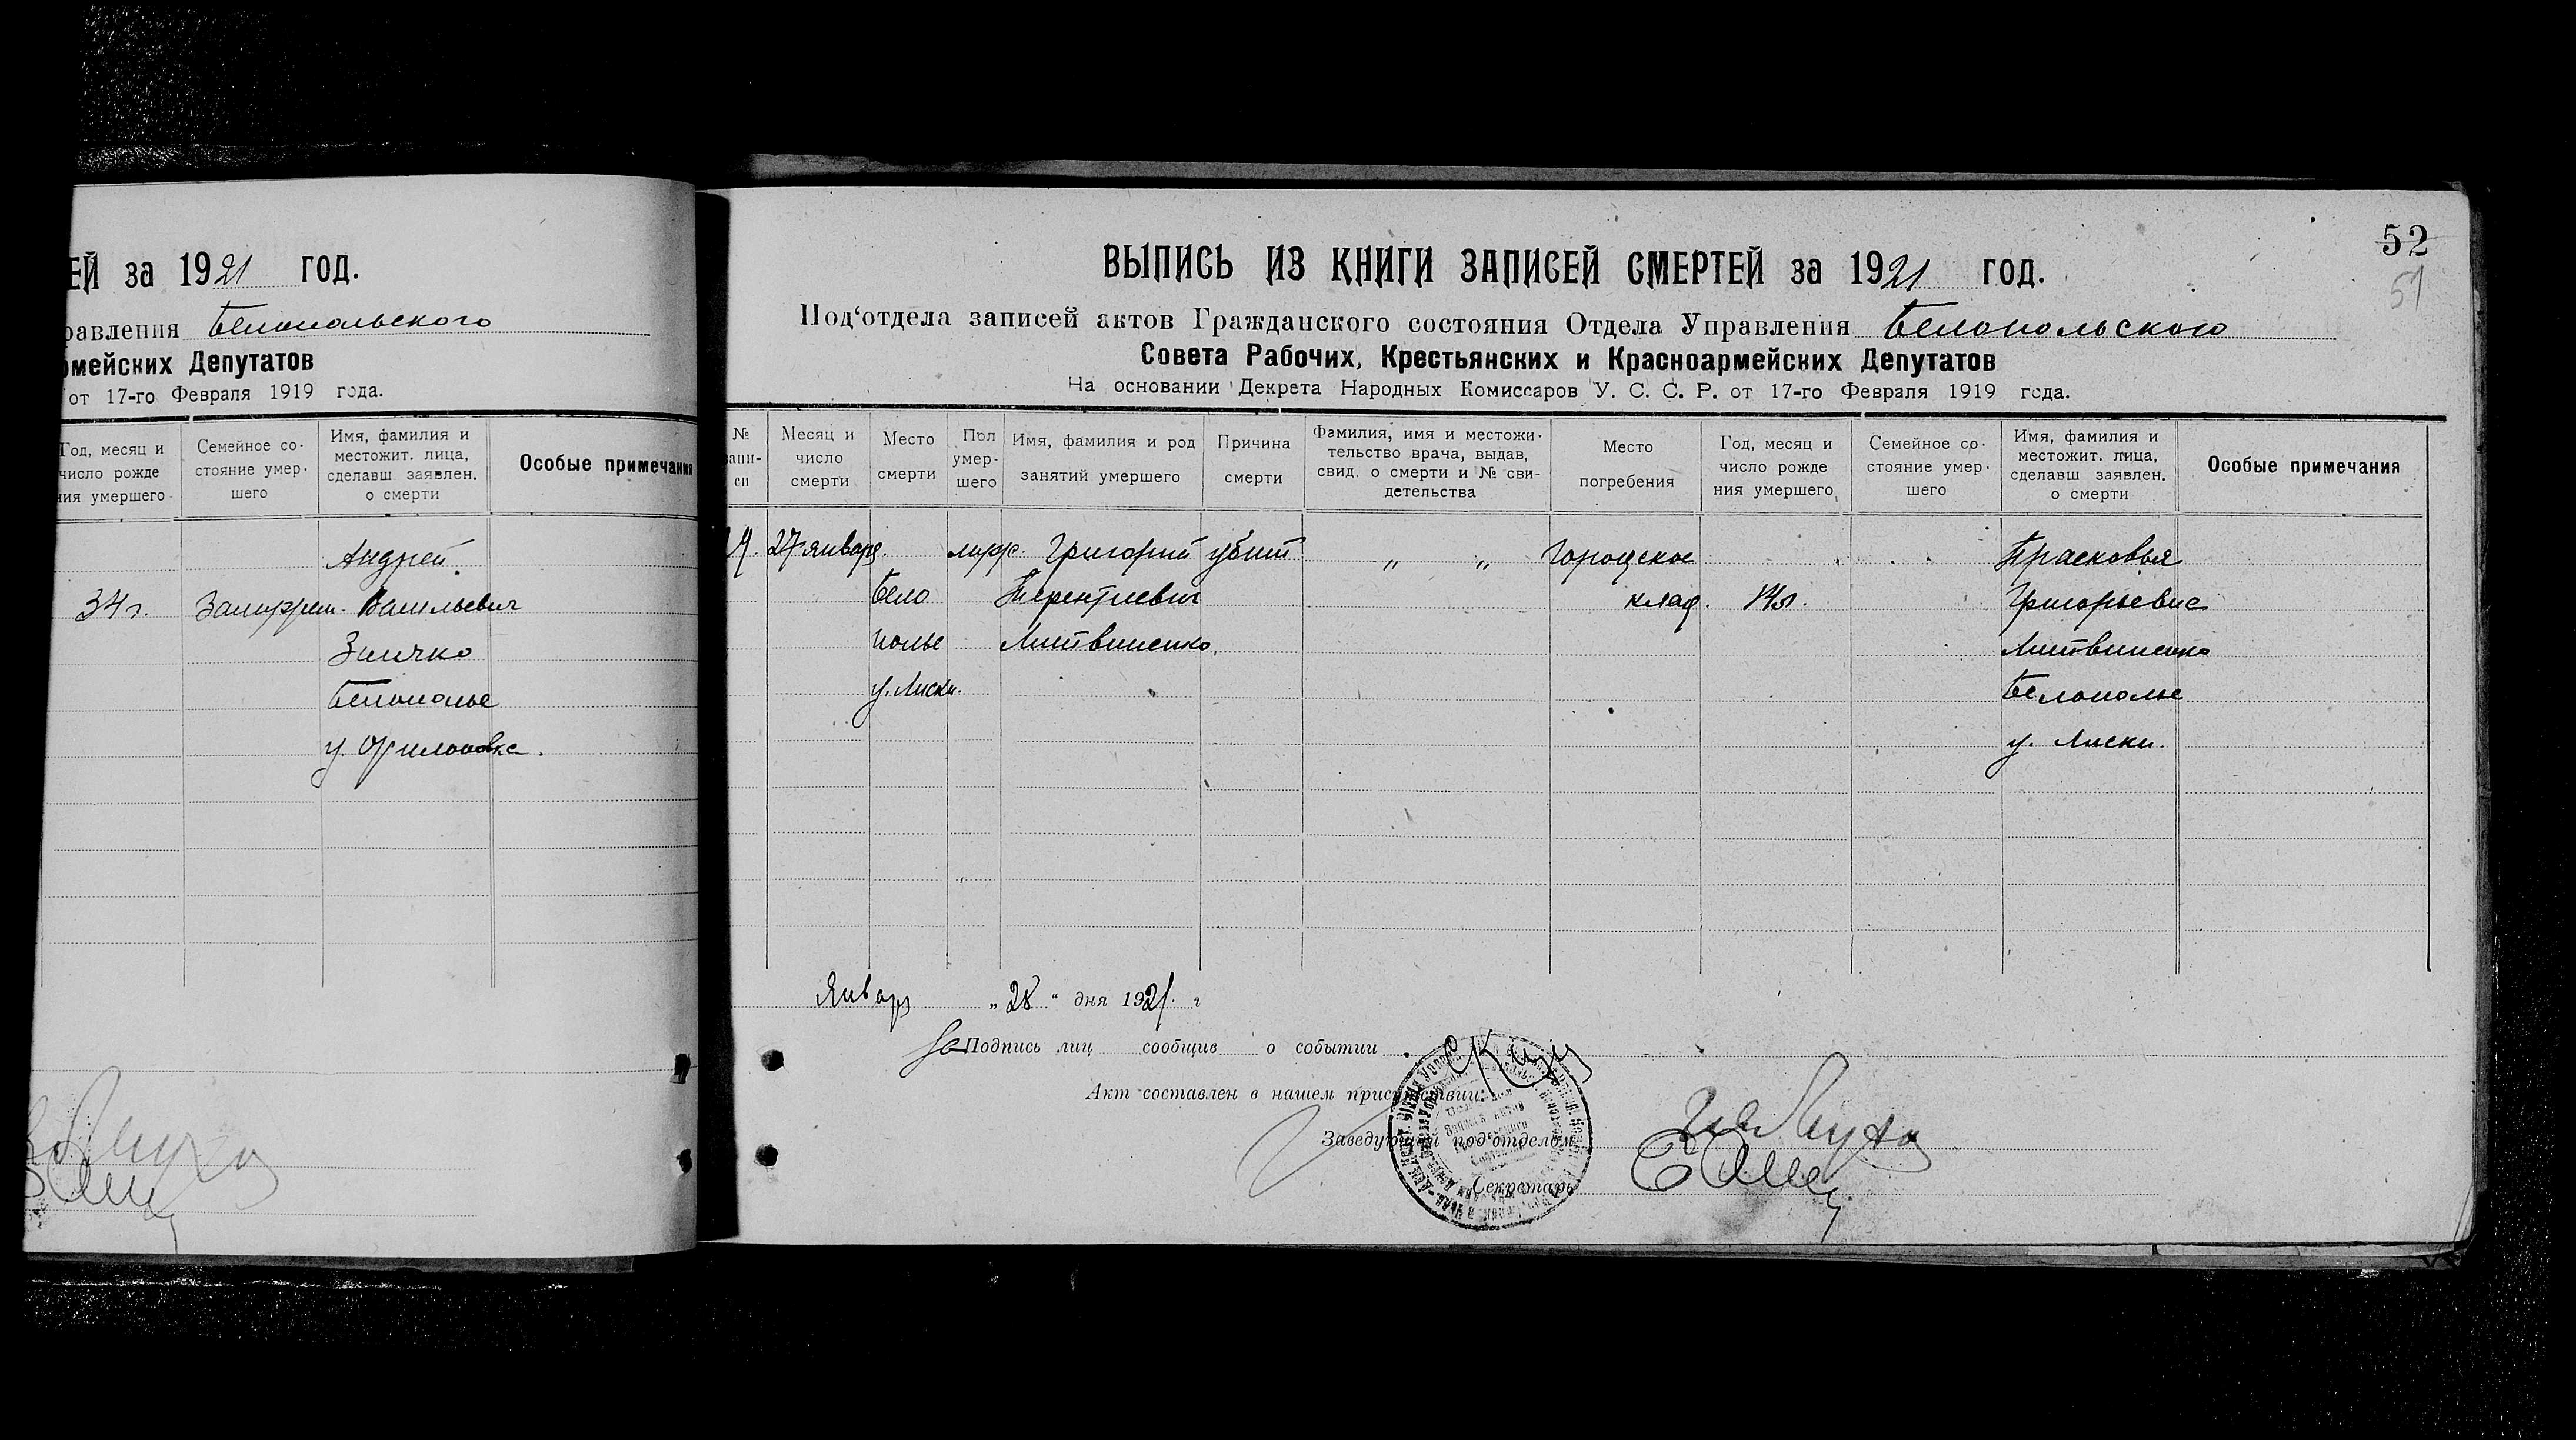 ЕЙ за 1921 год.
равления Белопольского
рмейских Депутатов
от 17-го Февраля 1919 года.
Год, месяц и число рожде ния умершего
Семейное со- стояние умер- шего
Имя, фамилия и местожит. лица, сделавш. заявлен. о смерти
Особые примечания
Андрей
34 г. Васильевич
Зинчко
Белополье
52
51
ВЫПИСЬ ИЗ КНИГИ ЗАПИСЕЙ СМЕРТЕЙ за 1921 год.
Под‘отдела записей актов Гражданского состояния Отдела Управления Белопольского
Совета Рабочих, Крестьянских и Красноармейских Депутатов
На основании Декрета Народных Комиссаров У. С. С. Р. от 17-го Февраля 1919 года.
№ запи- си
Месяц и число смерти
Место смерти
Пол умер- шего
Имя, фамилия и род занятий умершего
Причина смерти
Фамилия, имя и местожи- тельство врача, выдав, свид. о смерти и № сви- детельства
Место погребения
Год, месяц и число рожде ния умершего
Семейное со- стояние умер- шего
Имя, фамилия и местожит. лица, сделавш. заявлен. о смерти
Особые примечания
27 январ. Григорий убит „ „ Городское Прасковья
Бело Терентиевич клад. Григорьевна
полье Литвиненко Литвиненко
у. Лиски. Белополье
у. Лиски.
Январ „ 28 “ дня 1921. г
Подпись лиц сообщив о событии
Акт составлен в нашем присутствии:
Заведующий под‘отделом
Секретарь